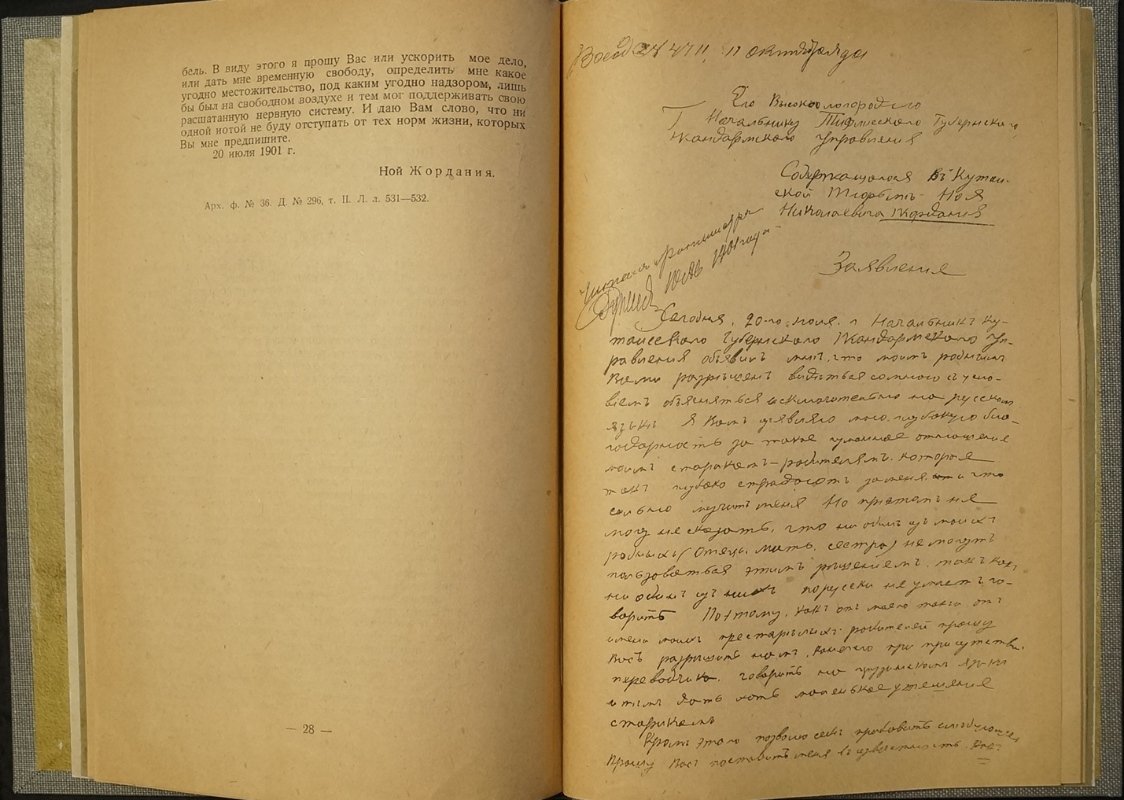 бель. В виду этого я прошу Вас или ускорить мое дело,
или дать мне временную свободу, определить мне какое
угодно местожительство, под каким угодно надзором, лишь
бы был на свободном воздухе и тем мог поддерживать свою
расшатанную нервную систему. И даю Вам слово, что ни
одной иотой не буду отступать от тех норм жизни, которых
Вы мне предпишите.
20 июля 1901 г.
Ной Жордания.
Арх. ф. № 36. Д. № 296, т. II. Л. л. 531—532.
— 28 —
Его Высокоблагородию
Начальнику Тифлисского Губернского
Жандармского Управления
Содержащагося въ Кутаи-
ской Тюрьмѣ Ноя
Николаевича Жордания
Заявления
Сегодня, 20-го июля, г Начальникъ Ку-
таисского Губернского Жандармского Уп-
равления объявилъ мнѣ, что моимъ роднымъ
Вами разрѣшенъ видѣться со мною съ усло-
віемъ объясняться исключительно на русскомъ
языкѣ. Я Вамъ изъявляю мою глубокую бла-
годарность за такое гуманное отношение
моимъ старикамъ-родителямъ, которые
такъ глубоко страдаютъ за меня и что
сильно мучитъ меня. Но притомъ не
могу не сказать, что ни одинъ изъ моихъ
родныхъ (Отецъ, мать, сестра) не могутъ
пользоваться этимъ рѣшениемъ, такъ какъ
ни одинъ изъ нихъ порусски не умѣетъ го-
ворить. Поэтому, какъ отъ моего такъ и отъ
имени моихъ престарѣлыхъ родителей прошу
Васъ разрѣшить намъ, конечно при присутствіи
переводчика, говорить на грузинскомъ языкѣ
и тѣмъ дать хоть маленькое утешения
старикамъ
Кромѣ этого позволю себѣ прибавить слѣдующее
Прошу Васъ поставить меня въ извѣстность